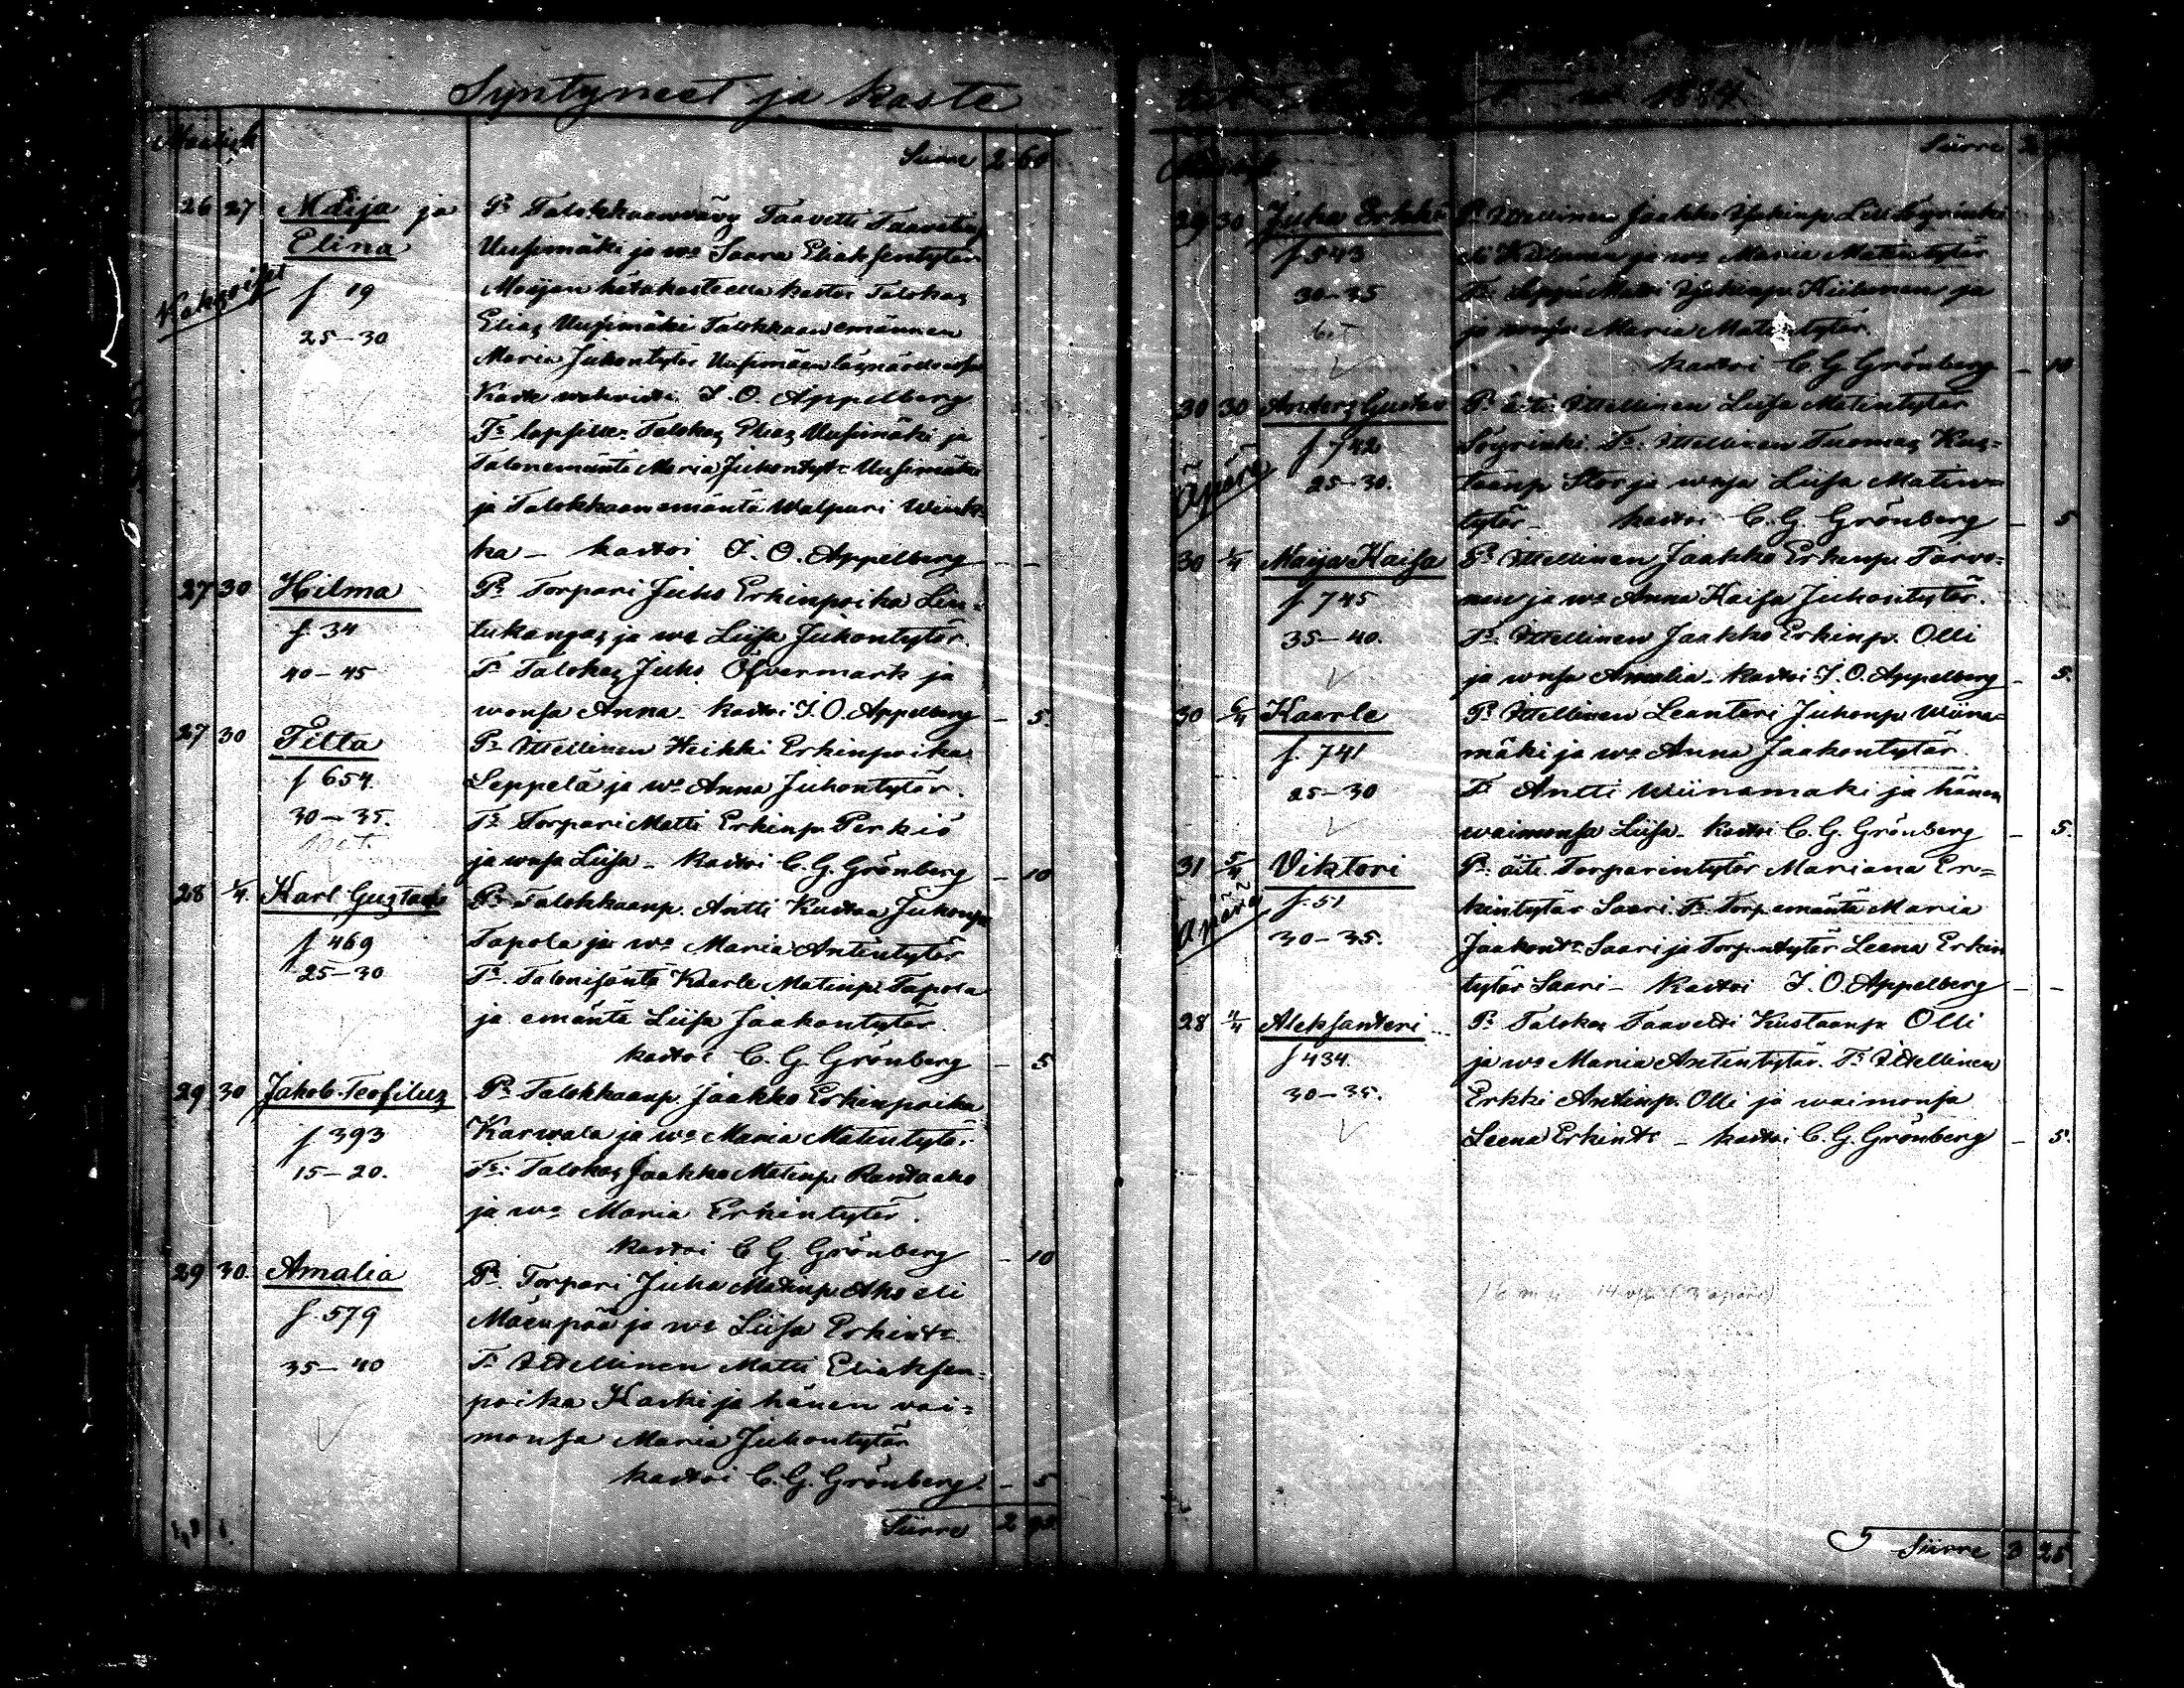 Syntyneet ja kaste
Maalisk
Siirre 2 60
26 27 Maija ja Elina
f 19
25-30
Kaksoiset
Prs Talokkaanvävy Taavetti Taavetinp
Uusimäki ja wo Saara Eliaksentytär
Maijan hätäkasteella kastoi Talokas
Elias Uusimäki Talokkaan emännän
Maria Juhontytär Uusimäen läsnäollessa
Kaste wahvisti J. O. Appelberg
Ts lapsille: Talokas Elias Uusimäki ja
Talonemäntä Maria Juhontytr Uusimäki
ja Talokkaanemäntä Walpuri Wiink-
ka – kastoi J. O. Appelberg – –
27 30 Hilma
f. 34
40-45
Prs Torpari Juho Erkinpoika Lin-
tukangas ja wo Liisa Juhontytär.
Ts Talokas Juho Öfvermark ja
wonsa Anna – kastoi J. O. Appelberg – 5.
27 30 Tilta
f 654.
30-35.
Prs Itsellinen Heikki Erkinpoika
Leppelä ja wo Anna Juhontytär.
Ts Torpari Matti Erkinp. Perkiö
ja wnsa Liisa – kastoi C. G. Grönberg – 10
28 1/4 Karl Gustaf
f 469
25-30
Prs Talokkaanp. Antti Kustaa Juhonp.
Tapola ja wo Maria Antintytär
Ts. Talonisäntä Kaarle Matinp. Tapola
ja emäntä Liisa Jaakontytär.
kastoi C. G. Grönberg – 5
29 30 Jakob Teofilus
f. 393
15-20.
Prs Talokkaanp. Jaakko Erkinpoika
Karwala ja wo Maria Matintytär
Ts: Talokas Jaakko Matinp. Rantaaho
ja wo Maria Erkintytär.
kastoi C G. Grönberg – 10
29 30. Amalia
f. 579
35-40
Prs Torpari Juha Matinp. Aho eli
Mäenpää ja wo Liisa Erkintr.
Ts Itsellinen Matti Eliaksen-
poika Kaski ja hänen vai-
monsa Maria Juhontytär
kastoi C. G. Grönberg. – 5
Siirre 2 95
1884
Siirre 2 95
29 30 Juha Erkki
f 543
30-35
Prs Itsellinen Jaakko Löyrinki
ja wo Maria Matintytär
Ts Matti Kiilunen ja
ja wonsa Maria Matintytär.
kastoi C. G. Grönberg – 10
30 30 Anders Gustav
f. 742
25-30.
Äpärä
Prs äiti: Itsellinen Liisa Matintytär
Löyrinki. Ts. Itsellinen Tuomas Kus-
taanp Stor ja wnsa Liisa Matin-
tytär – kastoi C. G. Grönberg – 5
30 1/4 Maija Kaisa
f. 745
35-40.
Prs Itsellinen Jaakko Erkinp. Tarvo-
nen ja wo Anna Kaisa Juhontytär.
Ts. Itsellinen Jaakko Erkinp. Olli
ja wnsa Amalia – kastoi J. O. Appelberg – 5.
30 6/4 Kaarle
f. 741
25-30
Prs Itsellinen Leanteri Juhonp. Wiina-
mäki ja wo Anna Jaakontytär.
Ts Antti Wiinamäki ja hänen
waimonsa Liisa – kastoi C. G. Grönberg – 5.
31 5/4 Viktori
f. 51
30-35.
Äpärä
Prs äiti. Torparintytär Mariana Er-
kintytär Saari. Ts. Torp. emäntä Maria
Jaakontr Saari ja Torpintytär Leena Erkin
tytär Saari – kastoi J. O. Appelberg – –
28 4/4 Aleksanteri
f 434.
30-35.
Prs Talokas Taavetti Kustaanp. Olli
ja wo Maria Antintytär. Ts Itsellinen
Erkki Antinp. Olli ja waimonsa
Leena Erkintr – kastoi C. G. Grönberg – 5.
Siirre 3 25